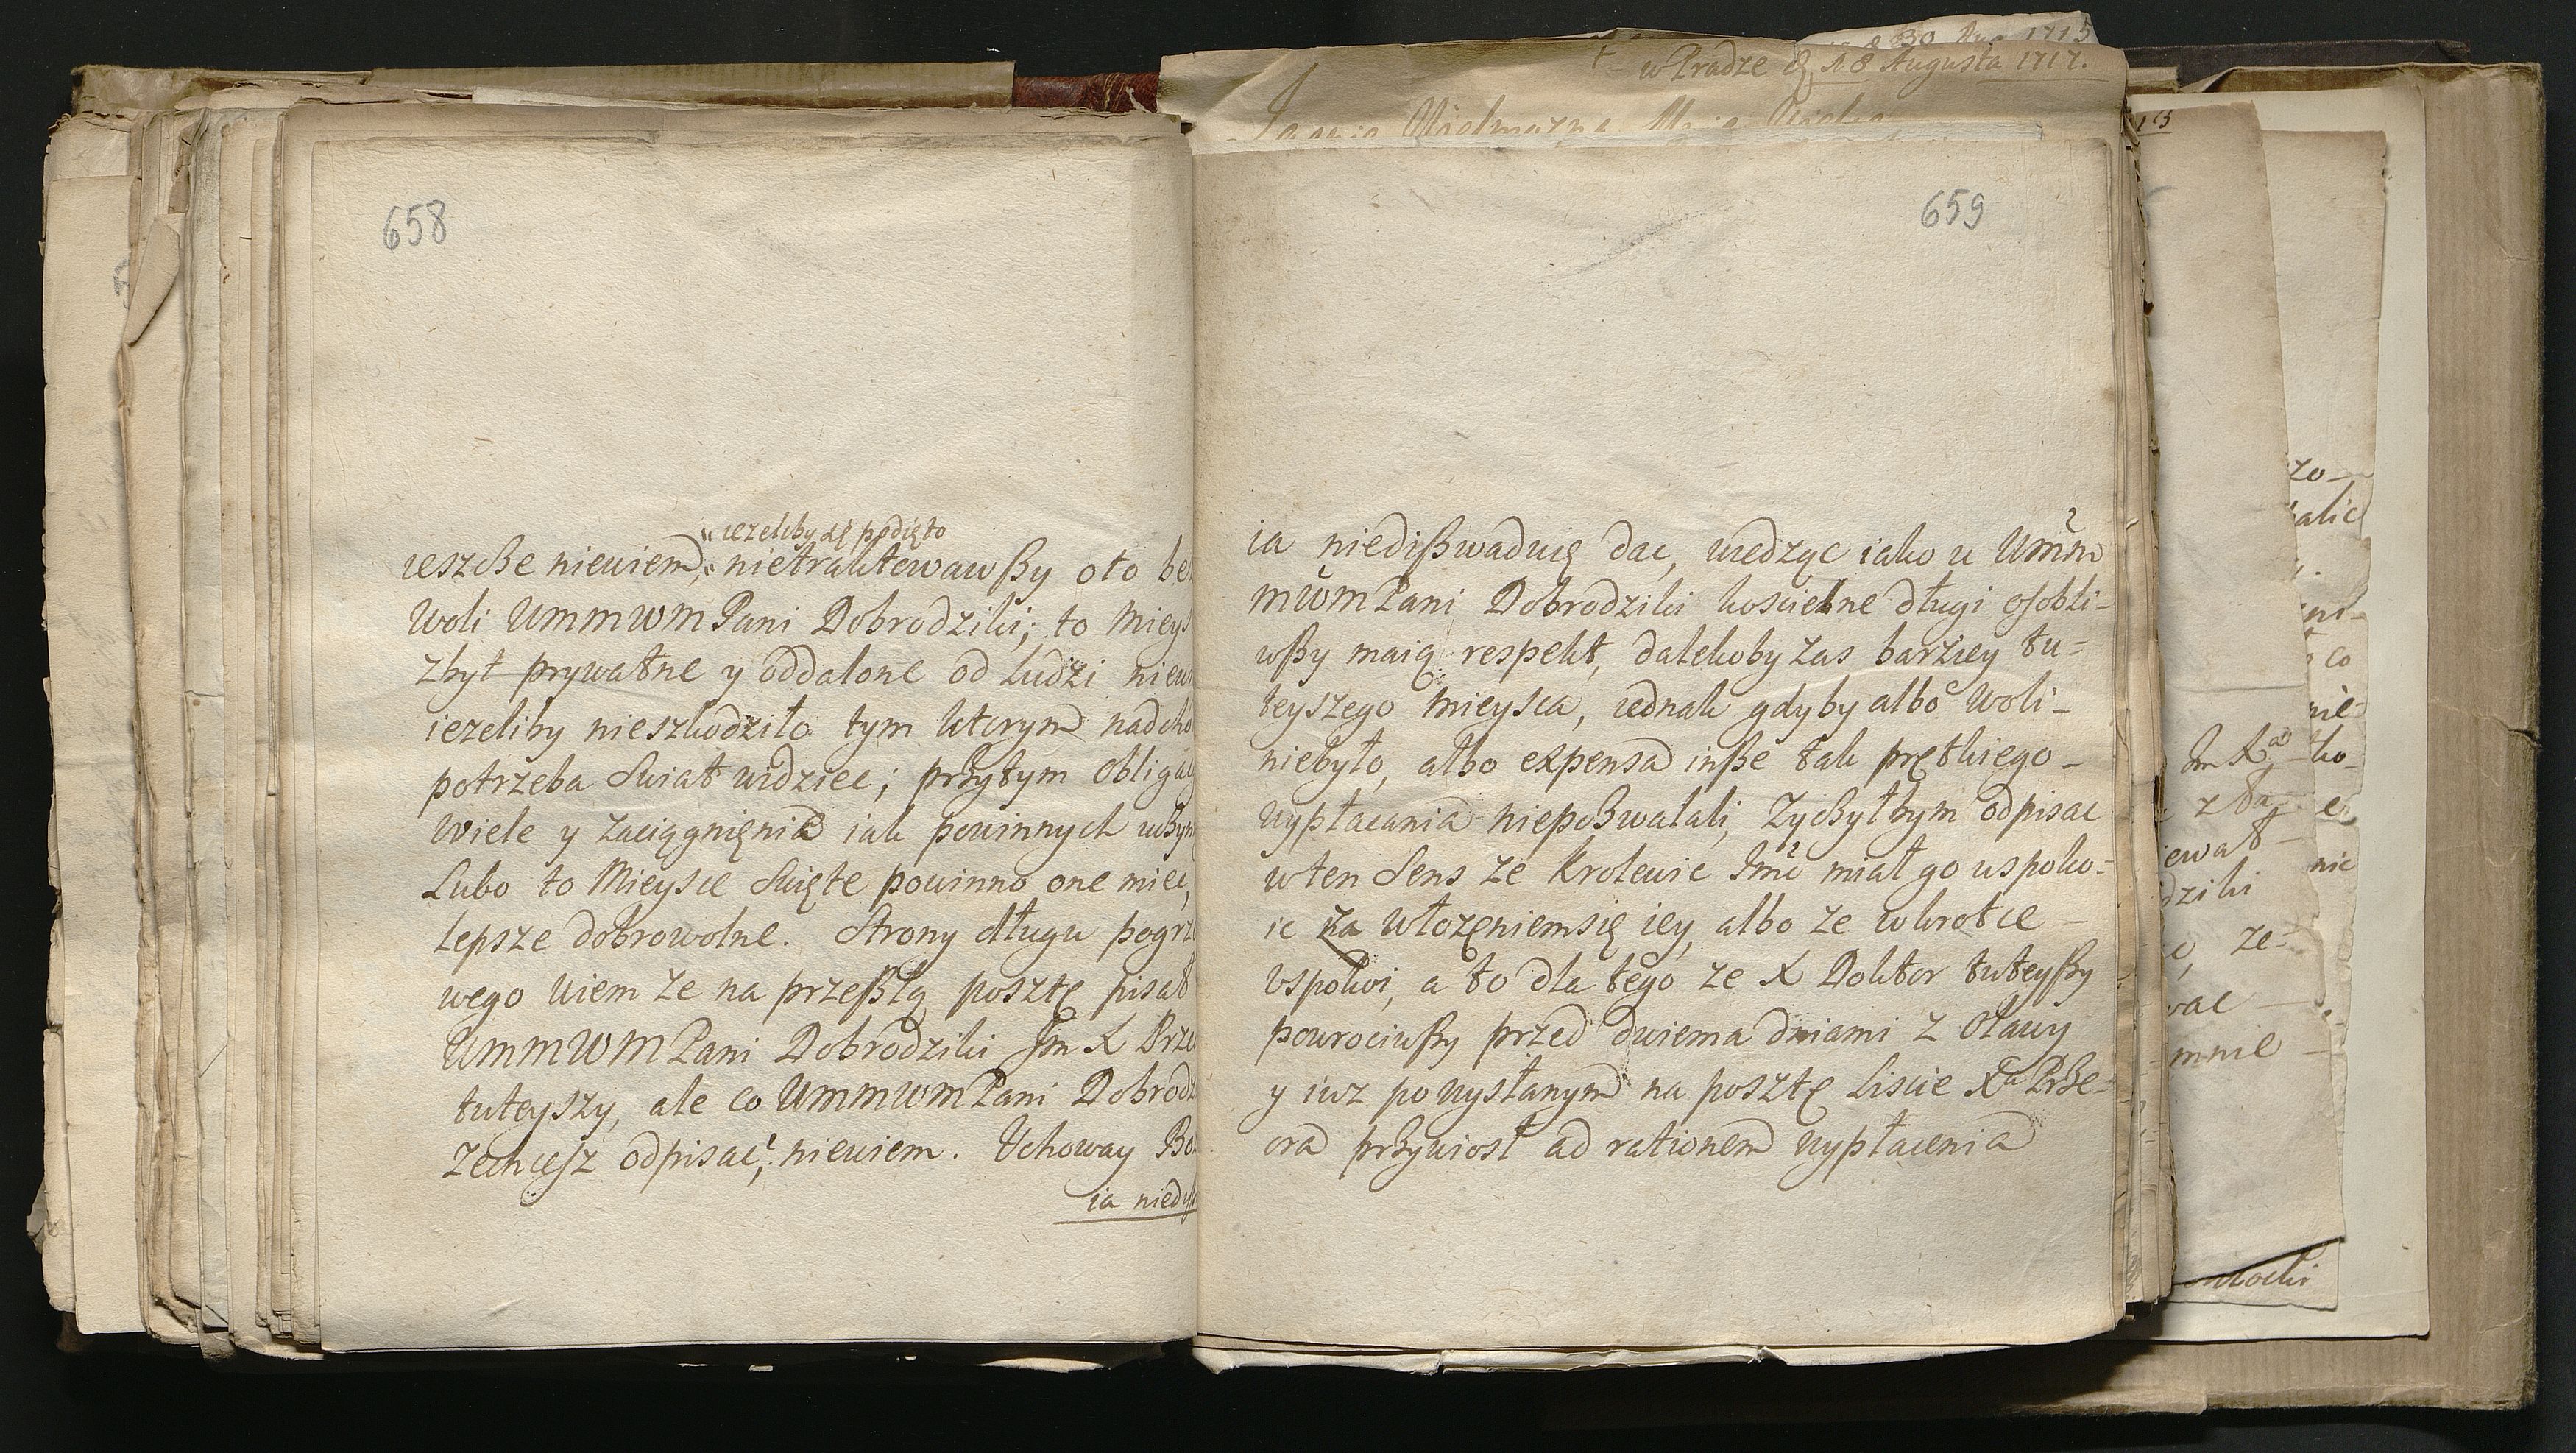 658
iezeliby się podięto
ieszcze niewiem, nietraktowawszy oto bez
Woli UmmWM Pani Dobrodziki; to Mieys
zbyt prywatne y oddalone od ludzi niew
iezeliby nieszkodziło tym ktorym nadcho
potrzeba Swiat widziec; przytym obligac
Wiele y zaciągnięnia iak powinnych uczyn
Lubo to Mieysce Swięte powinno one miec,
lepsze dobrowolne. Strony długu pogrze
wego wiem ze na przeszłą posztę pisał
UmmWM Pani Dobrodziki Jm X Prze
tuteyszy, ale co UmmWM Pani Dobrodz
zechcesz odpisać, niewiem. Uchoway Bo
ia niedys
659
ia niediszwaduię dac, wiedząc iako u Umm
mWm Pani Dobrodziki koscielne długi osobli-
wszy maią respekt, dalekoby zas barziey tu-
teyszego mieysca, iednak gdyby albo woli-
niebyło, albo expensa insze tak prętkiego-
wypłacania niepozwalali, Zyczyłbym odpisac
w ten Sens ze Krolewic Jmć miał go uspoko-
ic za włozeniemsię iey, albo ze wkrotce-
uspokoi, a to dla tego ze X Doktor tuteyszy
powrociwszy przed dwiema dniami z Oławy
y iuz po wysłanym na posztę Liscie Xa Prze-
ora przywiosł ad rationem wypłacenia
w Pradze d. 18 Augusta 1717.
30 Aug 1715